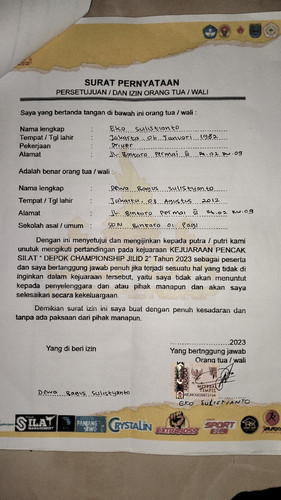 SURAT PERNYATAAN
PERSETUJUAN / DAN IZIN ORANG TUA / WALI
Saya yang bertanda tangan di bawah ini orang tua / wali :
Nama lengkap : Eko Sulistianto
Tempat / Tgl lahir : Jakarta, 06 Januari 1982
Pekerjaan : Driver
Alamat : Jl. Bintaro Permai III Rt.02 Rw.09
Adalah benar orang tua / wali :
Nama lengkap : Dewa Bagus Sulistyanto
Tempat / Tgl lahir : Jakarta, 08 Agustus 2012
Alamat : Jl. Bintaro Permai III Rt.02 Rw.09
Sekolah asal / umum : SDN Bintaro 01 Pagi
Dengan ini menyetujui dan mengijinkan kepada putra / putri kami
untuk mengikuti pertandingan pada kejuaraan KEJUARAAN PENCAK
SILAT " DEPOK CHAMPIONSHIP JILID 2" Tahun 2023 sebagai peserta
dan saya bertanggung jawab penuh jika terjadi sesuatu hal yang tidak di
inginkan dalam kejuaraan tersebut, yaitu saya tidak akan menuntut
kepada penyelenggara dan atau pihak manapun dan akan saya
selesaikan secara kekeluargaan.
Demikian surat izin ini saya buat dengan penuh kesadaran dan
tanpa ada paksaan dari pihak manapun.
..................2023
Yang di beri izin
Yang bertnggung jawab
Orang tua / wali
METERAI
TEMPEL
Dewa Bagus Sulistyanto
EKO SULISTIANTO
SILAT
CRYSTALIN
SPORT